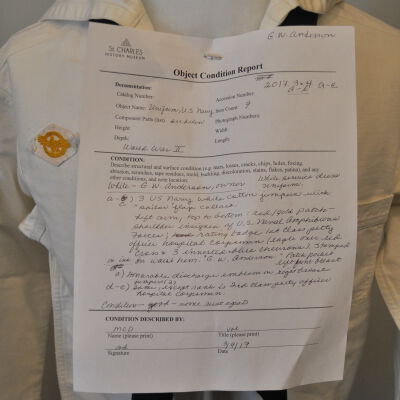 G.W. Anderson
ST. CHARLES
HISTORY MUSEUM
Object Condition Report
Documentation:
Catalog Number:
Accession Number: 2017
Object Name: Uniform, U.S. Navy Item Count: 9
Component Parts (list) see below Photograph Numbers:
Height: Width:
Depth: Length:
World War II
CONDITION:
Describe structural and surface condition (e.g. tears, losses, cracks, chips, holes, foxing,
abrasion, scratches, tape residues, mold, buckling, discoloration, stains, flakes, patina), and any
other conditions, and note location:
White service dress
White - G.W. Anderson, owner uniform
a-c) 3 US Navy white cotton jumpers with
"sailor flap" collars.
Left arm, top to bottom: red/gold patch -
shoulder insignia of U.S. Naval Amphibious
Forces; rating badge 1st class petty
officer hospital corpsman (eagle over red
cross & 3 inverted chevrons). Stamped
waist hem: G.W. Anderson - Patch pocket
left front breast
a) Honorable discharge emblem on right breast
d-e) same, except rank is 3rd class petty officer
hospital corpsman.
Condition - good - some rust spots
CONDITION DESCRIBED BY:
MCD vol
Name (please print) Title (please print)
3/9/17
Signature Date